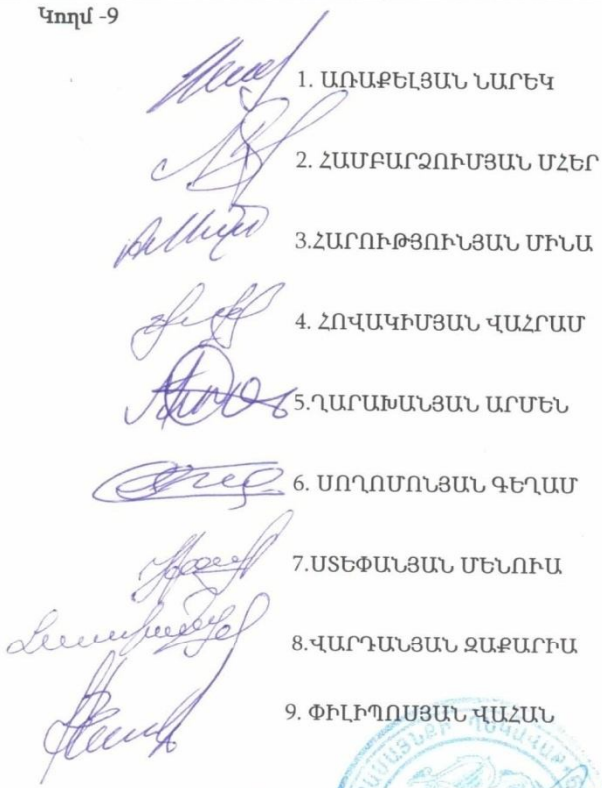 Կողմ -9
1. ԱՌԱՔԵԼՅԱՆ ՆԱՐԵԿ
2. ՀԱՄԲԱՐՁՈՒՄՅԱՆ ՄՀԵՐ
3.ՀԱՐՈՒԹՅՈՒՆՅԱՆ ՄԻՆԱ
4. ՀՈՎԱԿԻՄՅԱՆ ՎԱՀՐԱՄ
5.ՂԱՐԱԽԱՆՅԱՆ ԱՐՄԵՆ
6. ՍՈՂՈՄՈՆՅԱՆ ԳԵՂԱՄ
7.ՍՏԵՓԱՆՅԱՆ ՄԵՆՈՒԱ
8.ՎԱՐԴԱՆՅԱՆ ԶԱՔԱՐԻԱ
9. ՓԻԼԻՊՈՍՅԱՆ ՎԱՀԱՆ